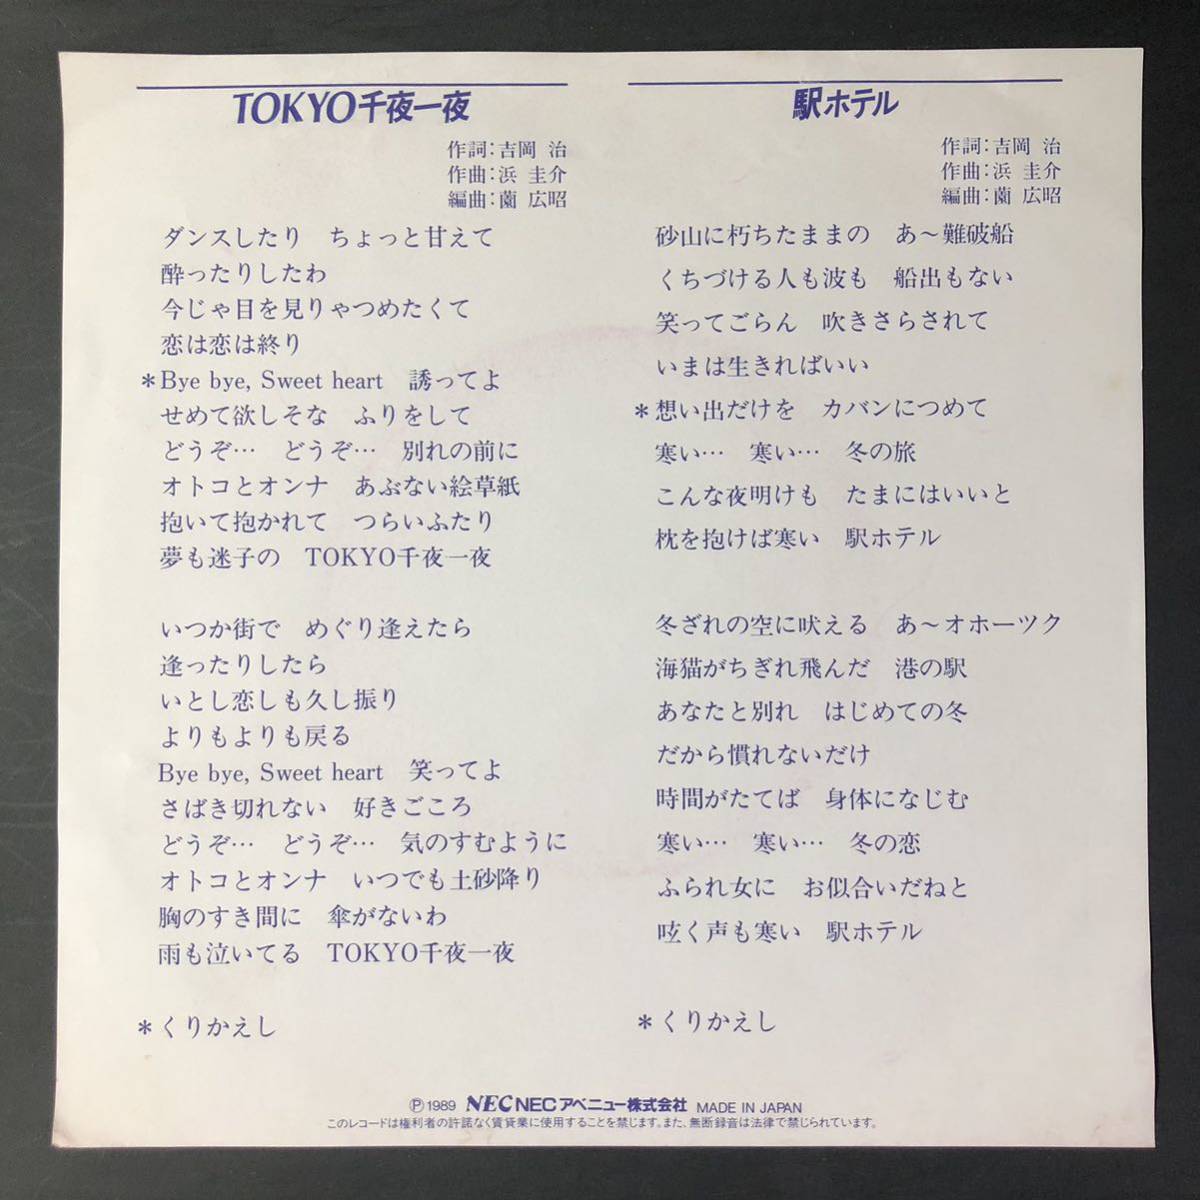 TOKYO千夜一夜
作詞:吉岡 治
作曲:浜 圭介
編曲:薗 広昭
ダンスしたり ちょっと甘えて
酔ったりしたわ
今じゃ目を見りゃつめたくて
恋は恋は終り
*Bye bye, Sweet heart 誘ってよ
せめて欲しそな ふりをして
どうぞ… どうぞ… 別れの前に
オトコとオンナ あぶない絵草紙
抱いて抱かれて つらいふたり
夢も迷子の TOKYO千夜一夜
いつか街で めぐり逢えたら
逢ったりしたら
いとし恋しも久し振り
よりもよりも戻る
Bye bye, Sweet heart 笑ってよ
さばき切れない 好きごころ
どうぞ… どうぞ… 気のすむように
オトコとオンナ いつでも土砂降り
胸のすき間に 傘がないわ
雨も泣いてる TOKYO千夜一夜
*くりかえし
駅ホテル
作詞:吉岡 治
作曲:浜 圭介
編曲:薗 広昭
砂山に朽ちたままの あ〜難破船
くちづける人も波も 船出もない
笑ってごらん 吹きさらされて
いまは生きればいい
*想い出だけを カバンにつめて
寒い… 寒い… 冬の旅
こんな夜明けも たまにはいいと
枕を抱けば寒い 駅ホテル
冬ざれの空に吠える あ〜オホーツク
海猫がちぎれ飛んだ 港の駅
あなたと別れ はじめての冬
だから慣れないだけ
時間がたてば 身体になじむ
寒い… 寒い… 冬の恋
ふられ女に お似合いだねと
呟く声も寒い 駅ホテル
*くりかえし
Ⓟ1989 NEC NECアベニュー株式会社 MADE IN JAPAN
このレコードは権利者の許諾なく賃貸業に使用することを禁じます。また、無断録音は法律で禁じられています。